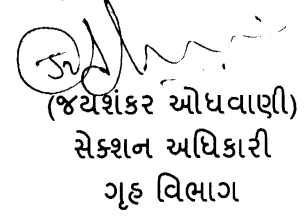 (જયશંકર ઓધવાણી)
સેક્શન અધિકારી
ગૃહ વિભાગ